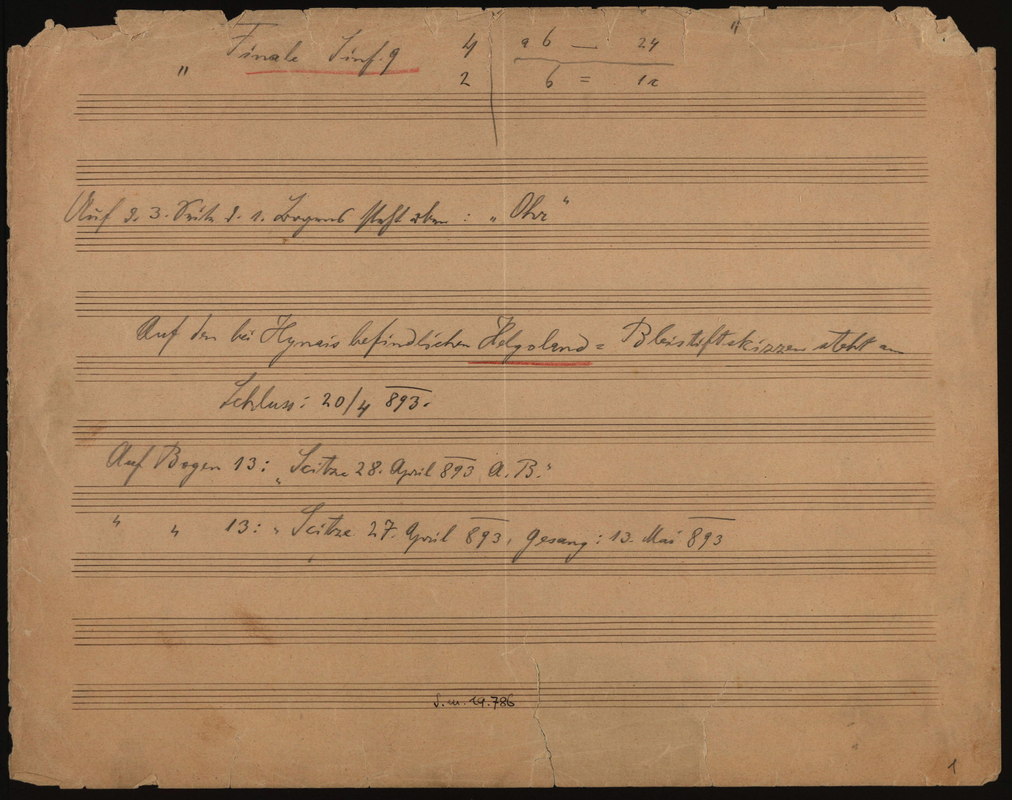 " Finale Sinf. 9 4 a 6 — 24 "
2 6 = 12
Auf d. 3. Seite d. 1. Bogens steht oben: „Ohr"
Auf den bei Hynais befindlichen Helgoland = Bleistiftskizzen steht am
Schluss: 20/4 893.
Auf Bogen 13: „Scitze 28. April 893 A. B."
" " 13: „Scitze 27. April 893, Gesang: 13. Mai 893
S.m. 19.786
1